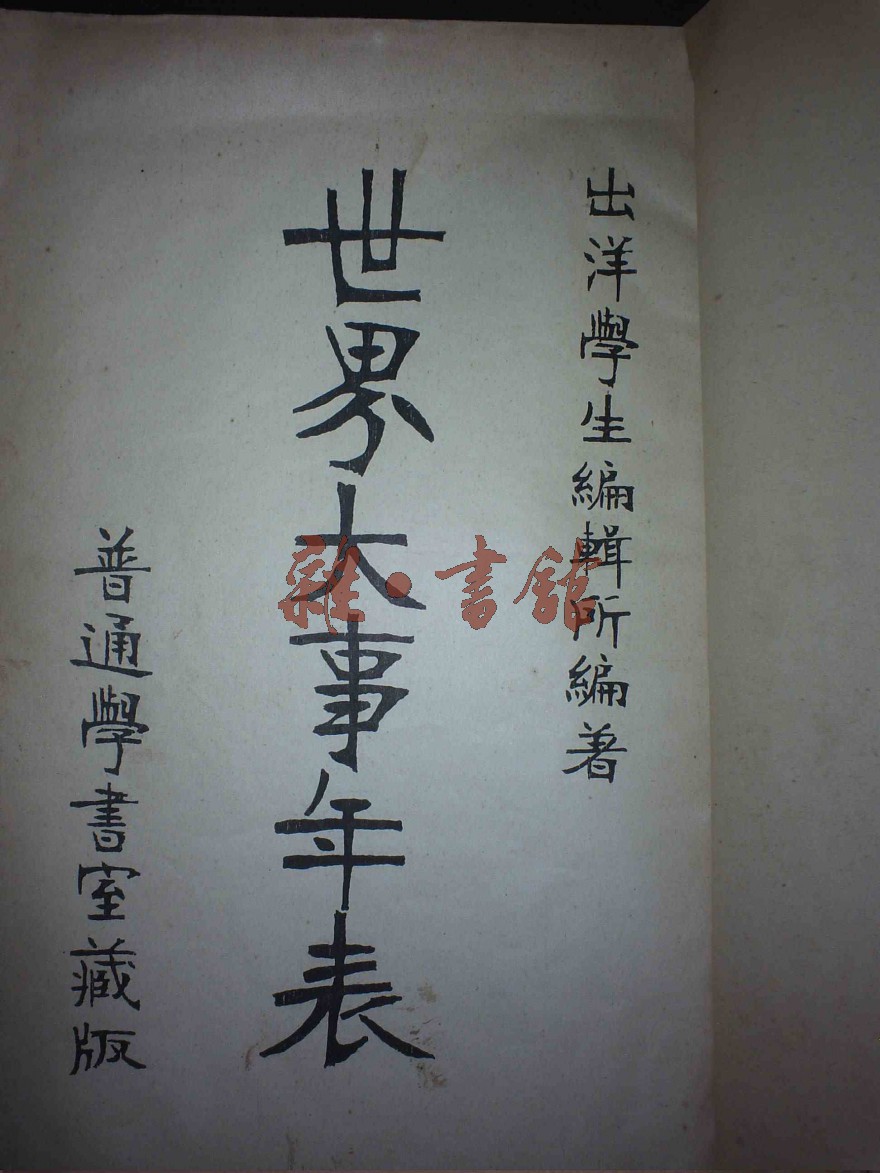 出洋學生編輯所編著
世界大事年表
普通學書室藏版
雜·書館